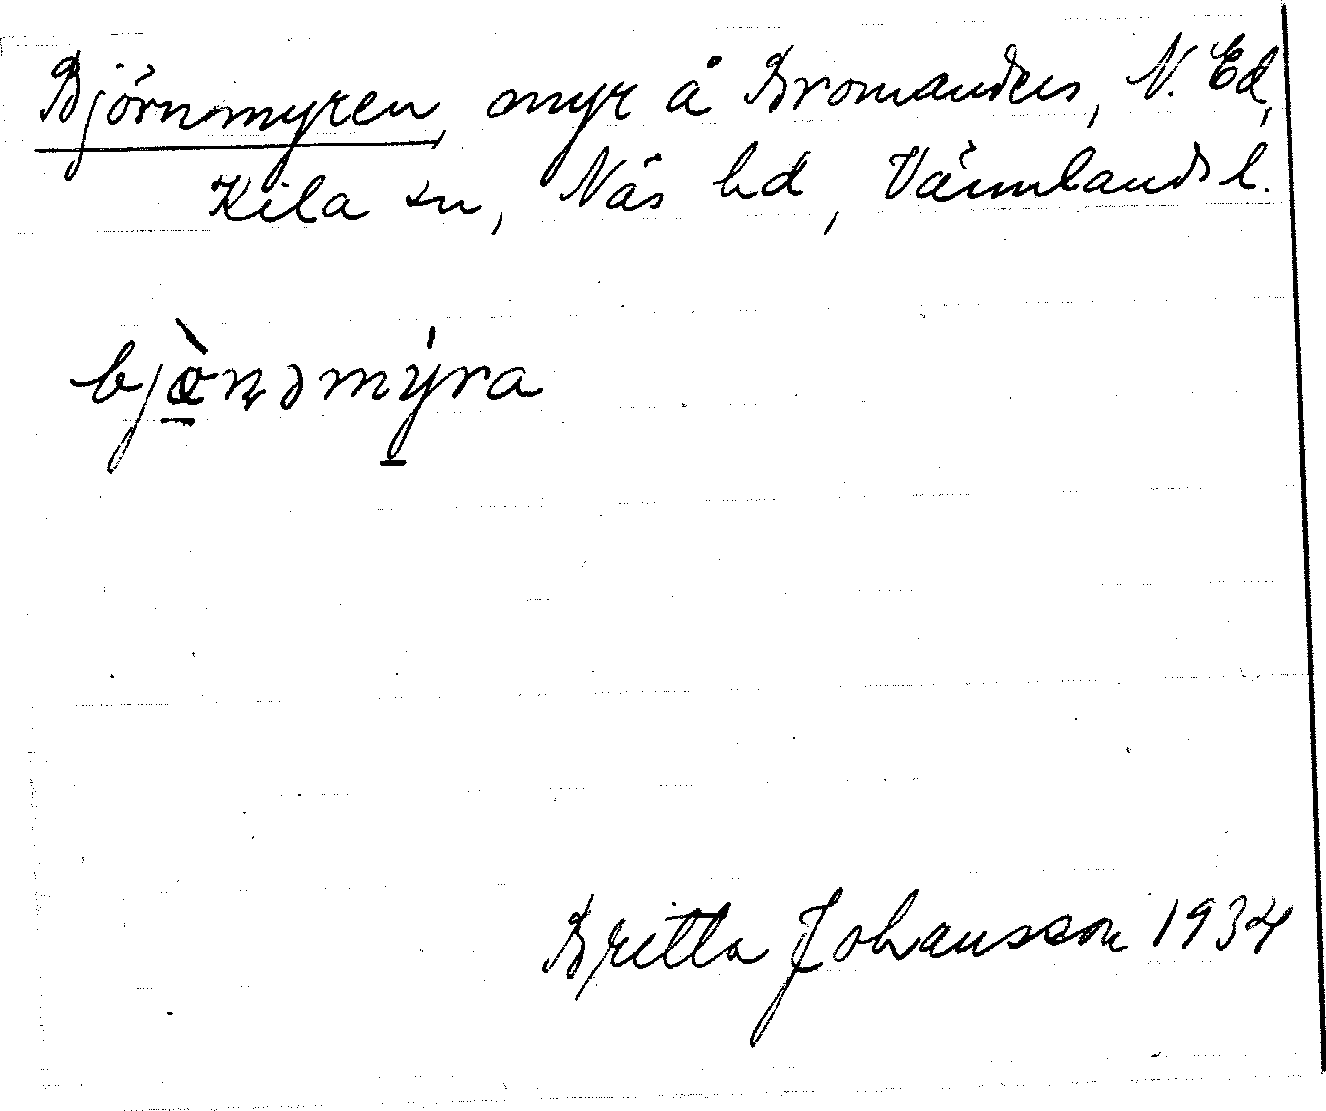 Björnomyren, myr å Bromanders, N. Ed,
Kila sn, Näs hd, Värmlands l.
bjò̱n̥ə mýra
Britta Johansson 1934